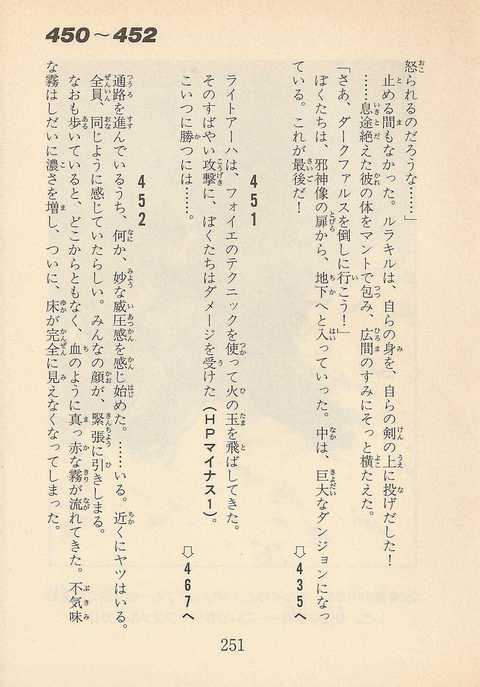 450～452
怒られるのだろうな……」
止める間もなかった。ルラキルは、自らの身を、自らの剣の上に投げだした！
……息途絶えた彼の体をマントで包み、広間のすみにそっと横たえた。
「さあ、ダークファルスを倒しに行こう！」
ぼくたちは、邪神像の扉から、地下へと入っていった。中は、巨大なダンジョンになっ
ている。これが最後だ！
⇨435へ
451
ライトアーハは、フォイエのテクニックを使って火の玉を飛ばしてきた。
そのすばやい攻撃に、ぼくたちはダメージを受けた（HPマイナス1）。
こいつに勝つには……。
⇨467へ
452
通路を進んでいるうち、何か、妙な威圧感を感じ始めた。……いる。近くにヤツはいる。
全員、同じように感じていたらしい。みんなの顔が、緊張に引きしまる。
なおも歩いていると、どこからともなく、血のように真っ赤な霧が流れてきた。不気味
な霧はしだいに濃さを増し、ついに、床が完全に見えなくなってしまった。
251